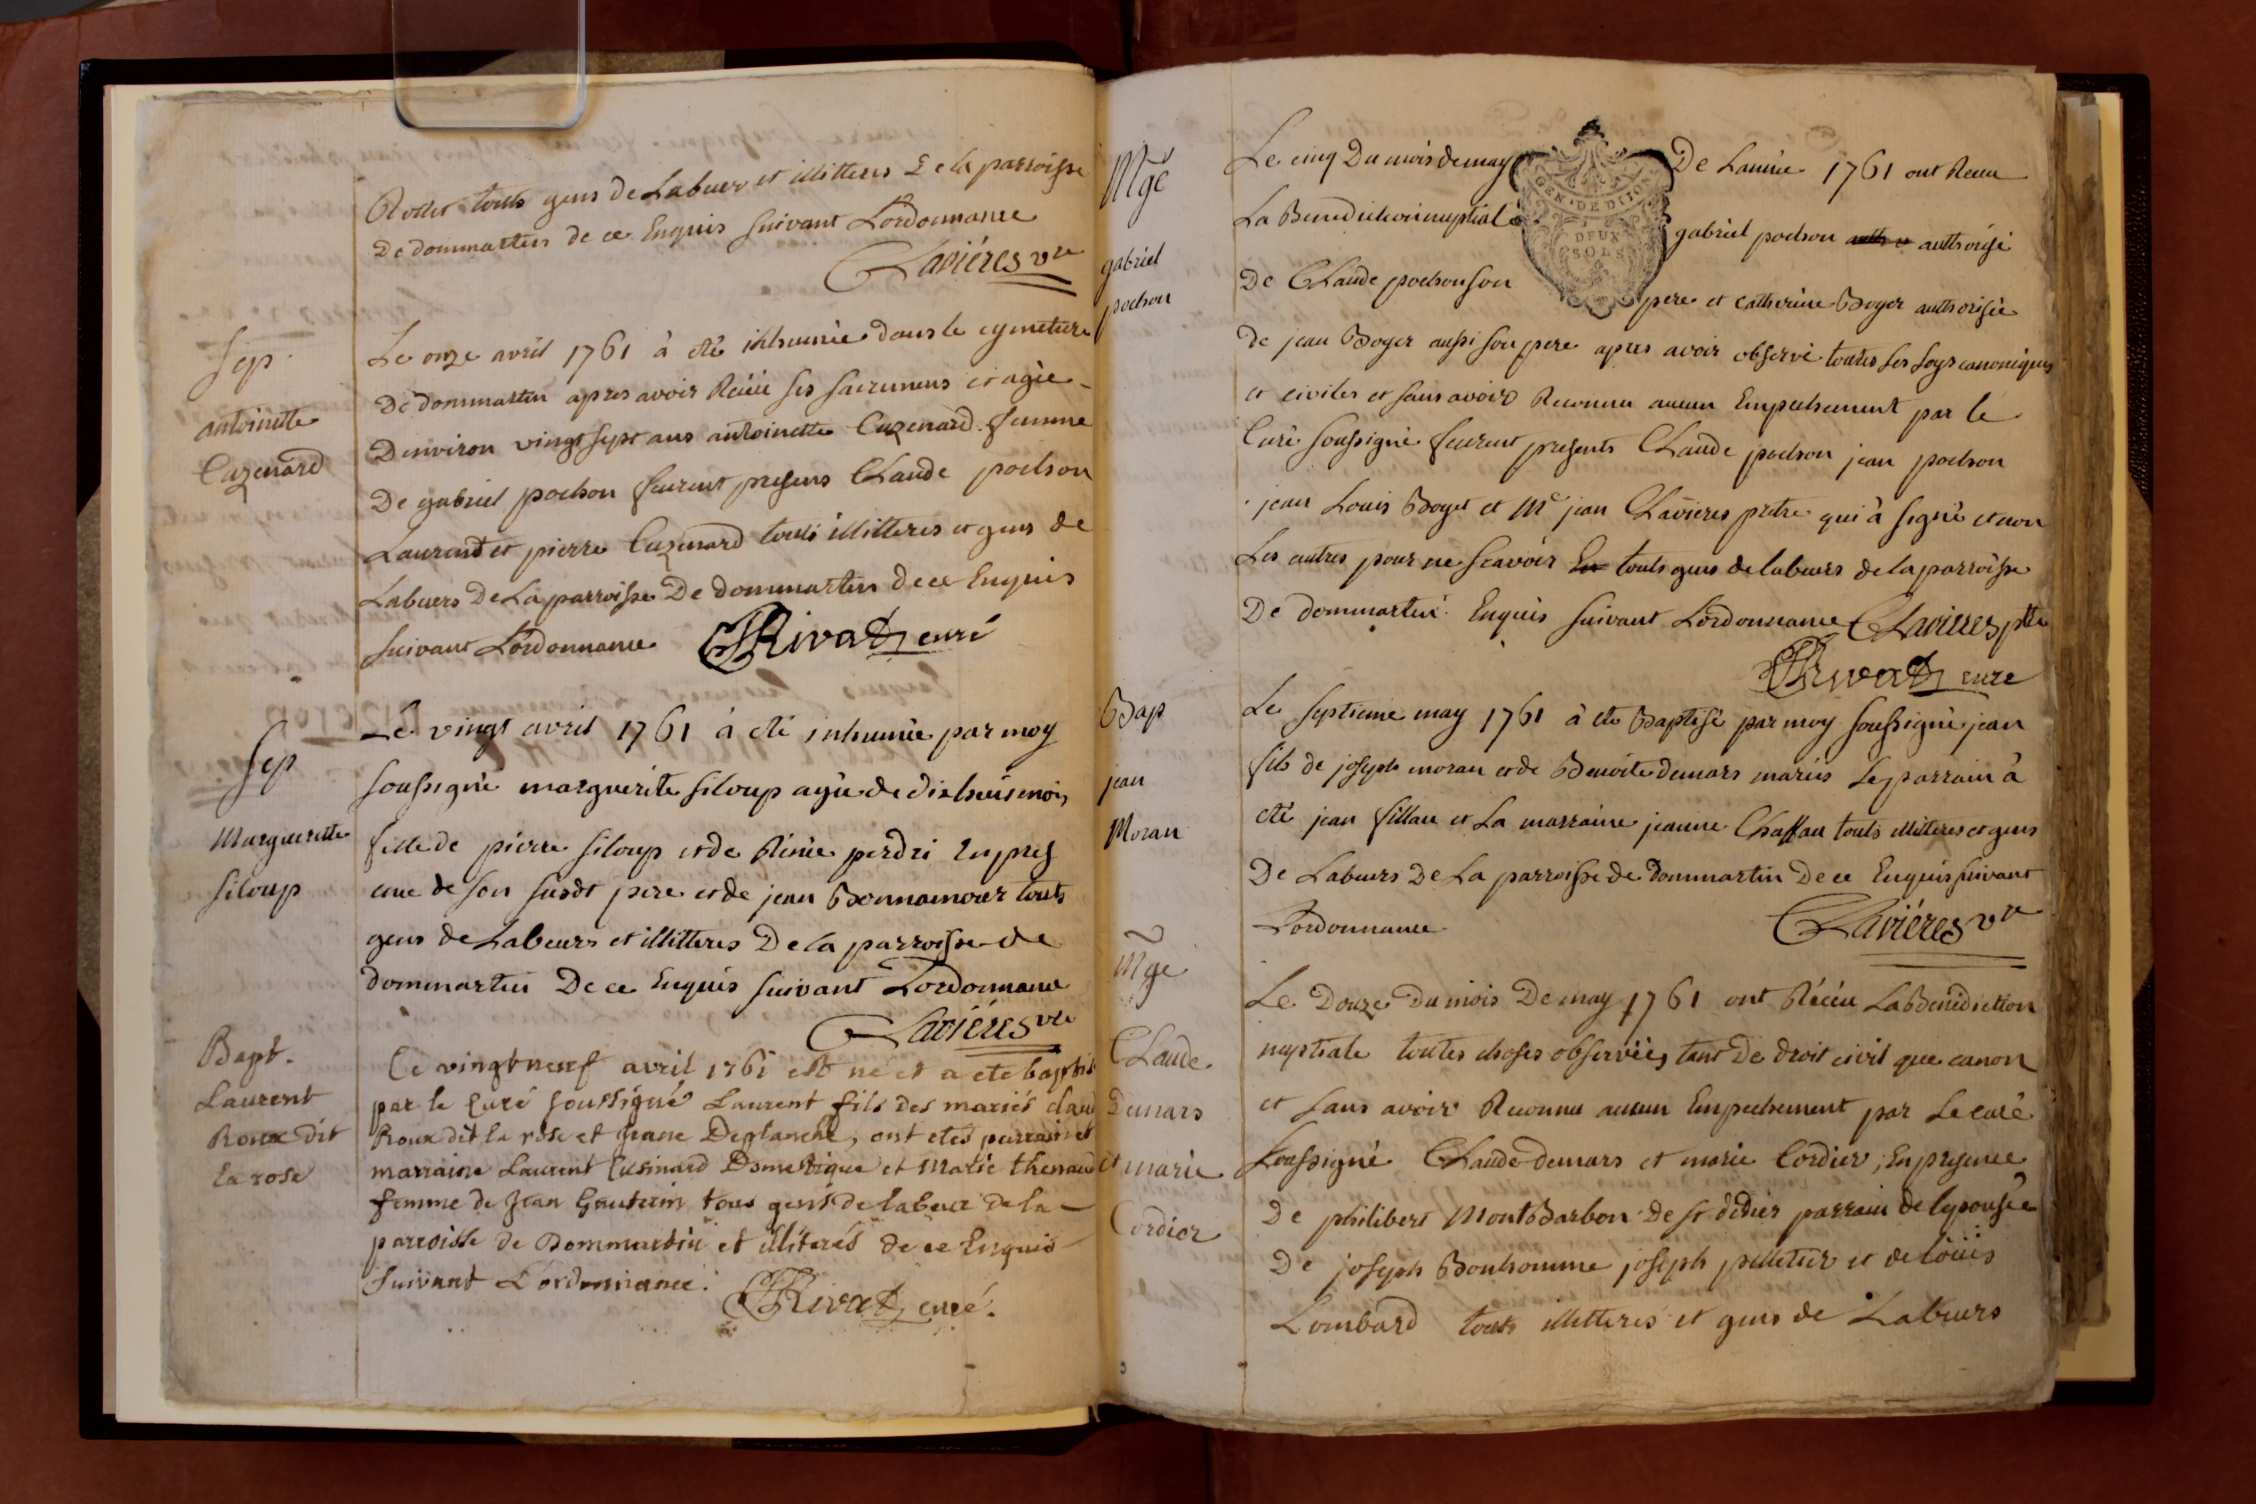 Rollet touts gens de Labuer et illitteres De la parroisse
De dommartin de ce Enquis suivant Lordonnance
Clavières vre
Sep.
antoinette
Cuzenard
Le onze avril 1761 à eté inhumée dans le cymetiere
De dommartin apres avoir Reçüe ses sacremens et agée
Denviron vingt sept ans antoinette Cuzenard femme
De gabriel pochon furent presens Claude pochon
Laurent et pierre Cuzenard touts illitteres et gens de
Labuers De La parroisse De dommartin de ce Enquis
suivant Lordonnance Rivat curé
Sep
Margueritte
siloup
Le vingt avril 1761 à eté inhumée par moy
soussigné marguerite siloup agée de dixhuit mois
fille de pierre siloup et de Rénée perdri En pres
ence de son susdt pere et de jean Bonnamour touts
gens de Labeurs et illitteres De la parroisse de
dommartin De ce Enquis suivant Lordonnance
Clavières vre
Bapt.
Laurent
Roux dit
La rose
Ce vingt neuf avril 1761 est né et a eté baptisé
par le curé soussigné Laurent fils des mariés claud
Roux dit la rose et jeane Deplanche, ont etes parrain et
marraine Laurent Cusinard Domestique et Marie thenaud
femme de Jean Gauterin tous gens de labeur de la
parroisse de Dommartin et illiterés de ce Enquis
suivant L'ordonnance. Rivat curé.
Mge
gabriel
pochon
Le cinq Du mois de may De Lannée 1761 ont Receu
GEN. DE DIJON
DEUX
SOLS
La Benediction nuptiale gabriel pochon authorisé
De Claude pochon son pere et catherine Boyer authorisée
de jean Boyer aussi son pere apres avoir observé toutes les loys canoniques
et civiles et sans avoir Reconnu aucun Empechement par le
Curé soussigné furent presents Claude pochon jean pochon
jean Louis Boyer et Mre jean Clavieres pretre qui à signé et non
Les autres pour ne sçavoir touts gens de labeurs de la parroisse
De dommartin Enquis suivant Lordonnance Clavieres ptre
Rivat curé
Bap
jean
Moran
Le septieme may 1761 à eté Baptisé par moy soussigné jean
fils de joseph moran et de Benoite demars mariés Le parrain à
eté jean fillau et La marraine jeanne Chaffau touts illitteres et gens
De Labeurs De La parroisse de dommartin De ce Enquis suivant
Lordonnance Clavières vre
Mge
Claude
Demars
et marie
Cordier
Le Douze Du mois De may 1761 ont Réceu La Benediction
nuptiale toutes choses observées tant De droit civil que canon
et sans avoir Reconnu aucun Empechement par Le curé
soussigné Claude demars et marie Cordier, En presence
De philibert MontBarbon De st didier parrain de lepousée
De joseph Bonhomme joseph pelletier et de Loüis
Lombard touts illitteres et gens de Labeurs